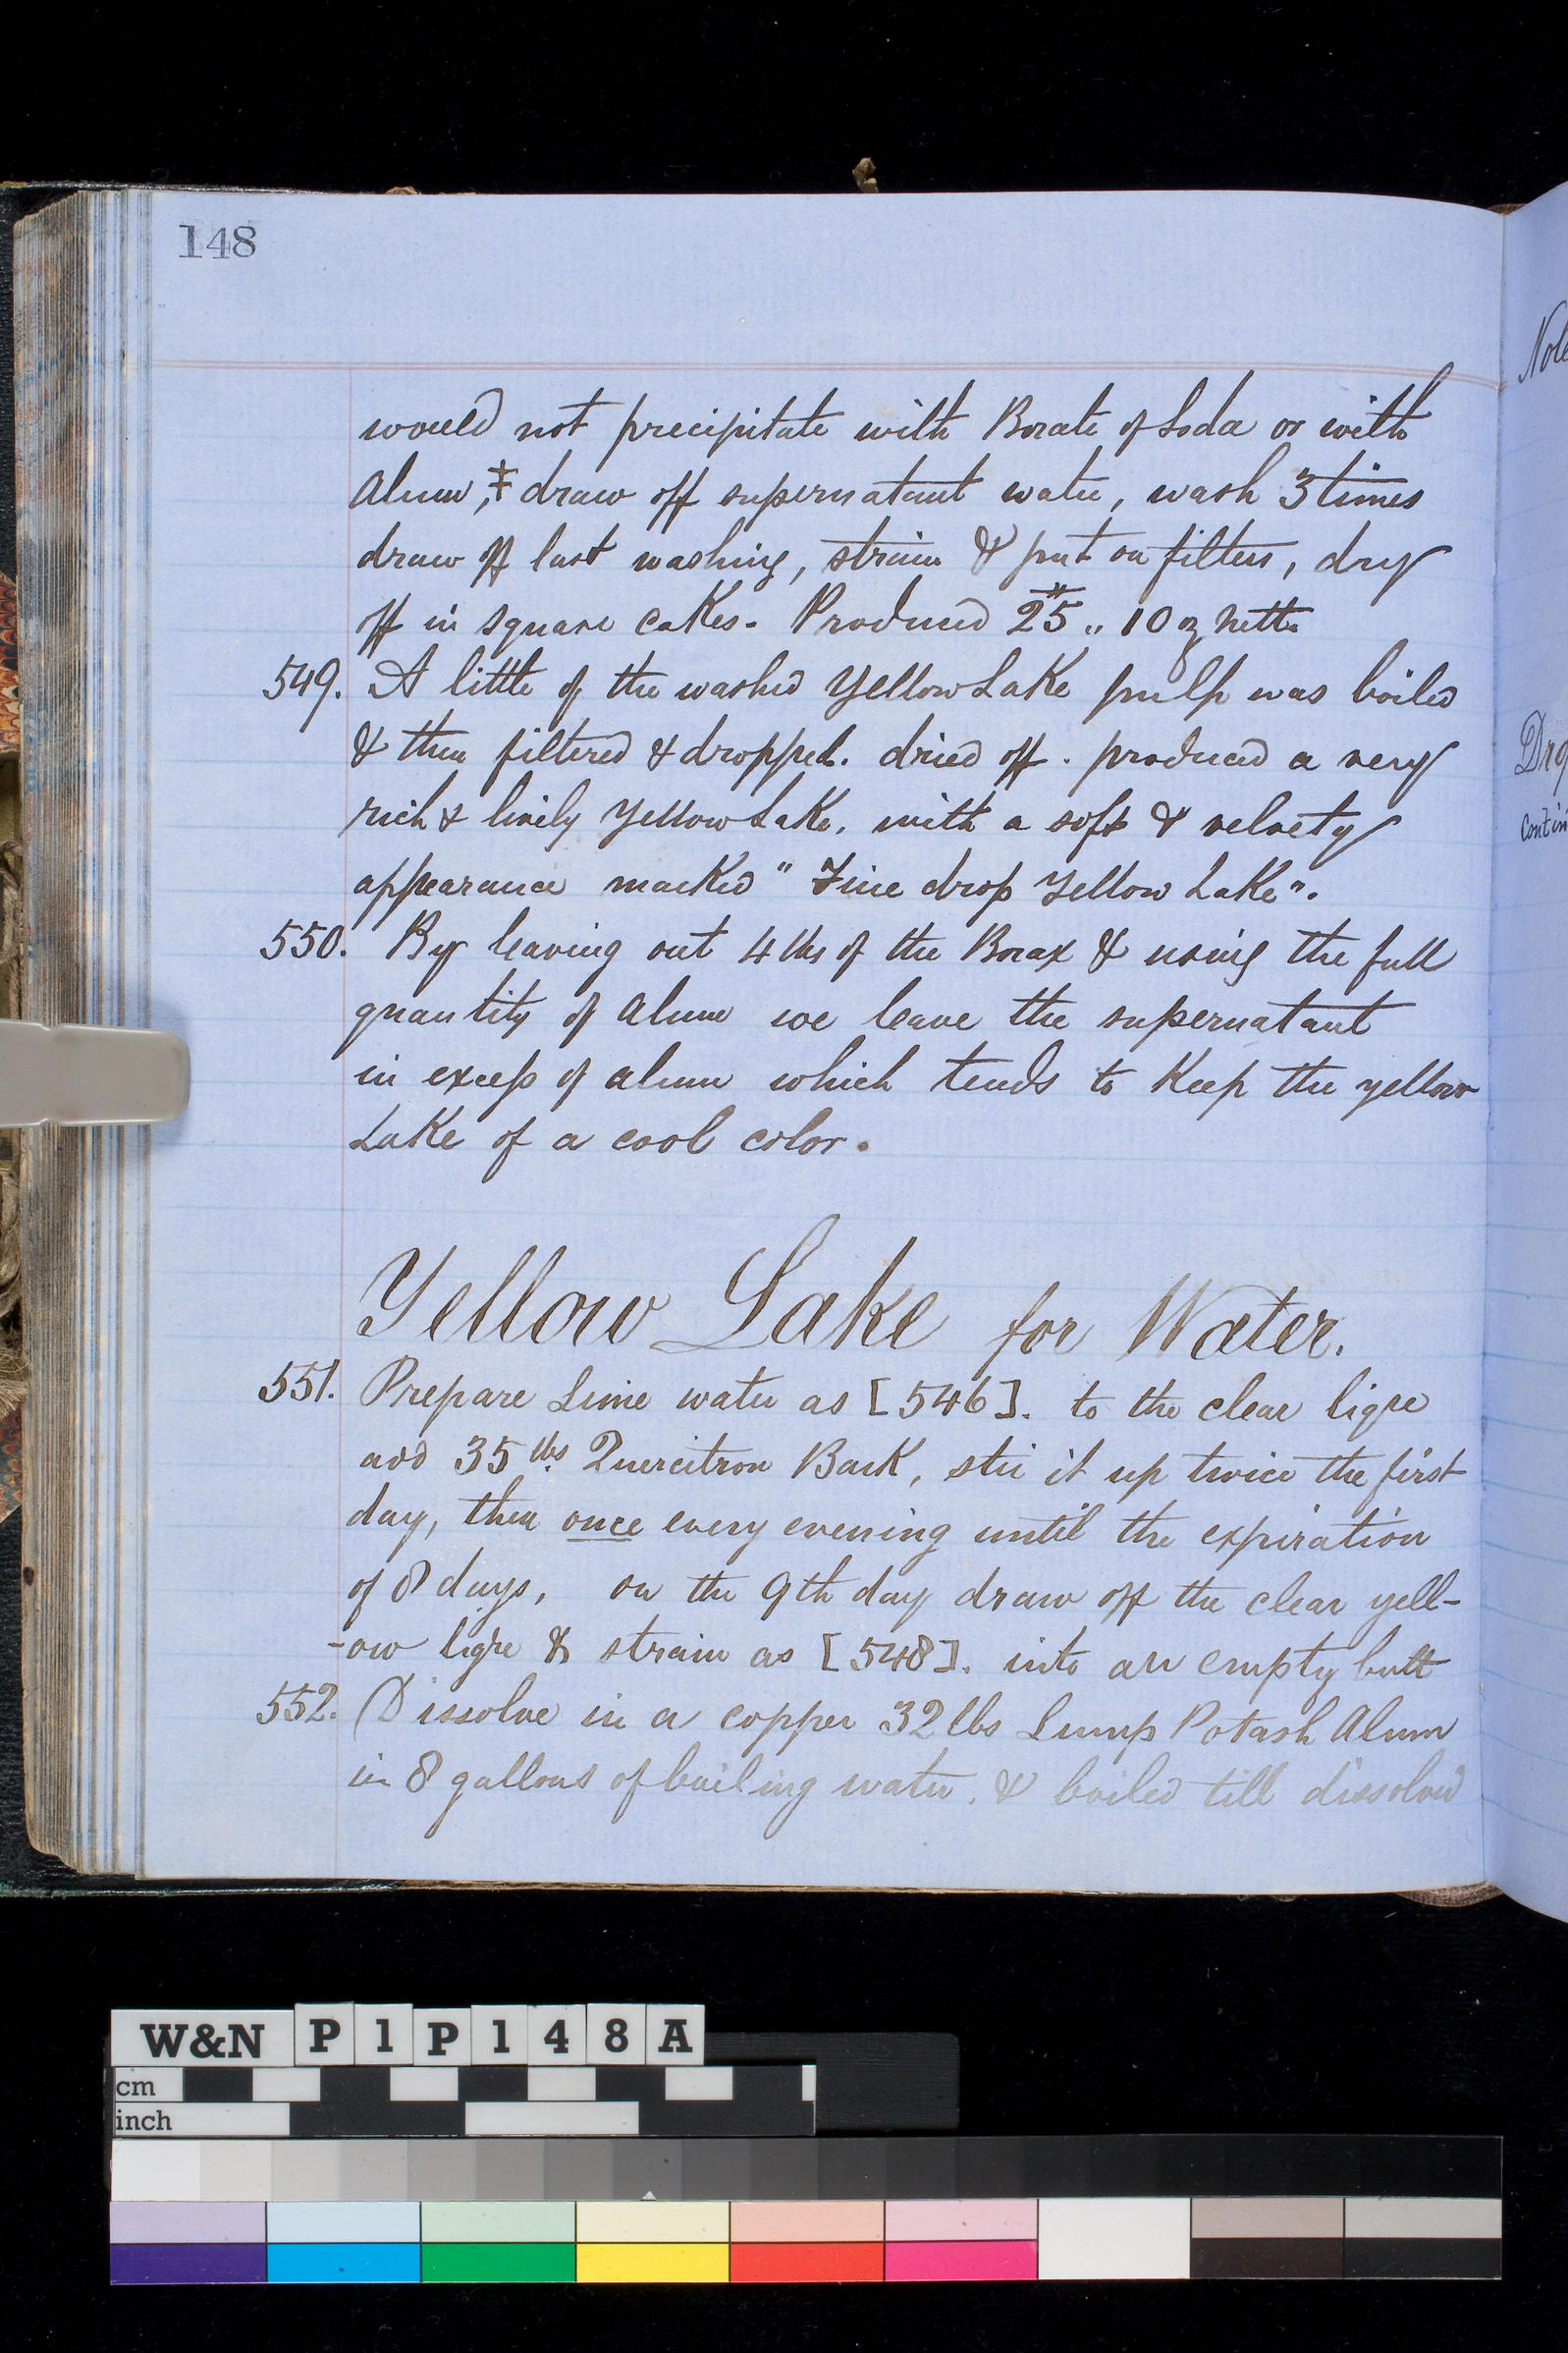 148
would not precipitate with Borate of Soda or with
Alum,‡ draw off supernatant water, wash 3 times
draw off last washing, strain & put on filters, dry
off in square cakes. Produced 25# „ 10 oz nett.
549. A little of the washed Yellow Lake pulp was boiled
& then filtered & dropped. dried off. produced a very
rich & lively Yellow Lake, with a soft & velvety
appearance marked "Fine drop Yellow Lake".
550. By leaving out 4 lbs of the Borax & using the full
quantity of Alum we leave the supernatant
in excess of alum which tends to keep the yellow
Lake of a cool color.
Yellow Lake for Water.
551. Prepare Lime water as [546]. to the clear liqre
add 35 lbs. Quercitron Bark, stir it up twice the first
day, then once every evening until the expiration
of 8 days, on the 9th day draw off the clear yell-
-ow liqre & strain as [548]. into an empty butt
552. Dissolve in a copper 32 lbs Lump Potash Alum
in 8 gallons of boiling water. & boiled till dissolved
Dro
contin
W&N P1P148A
cm
inch